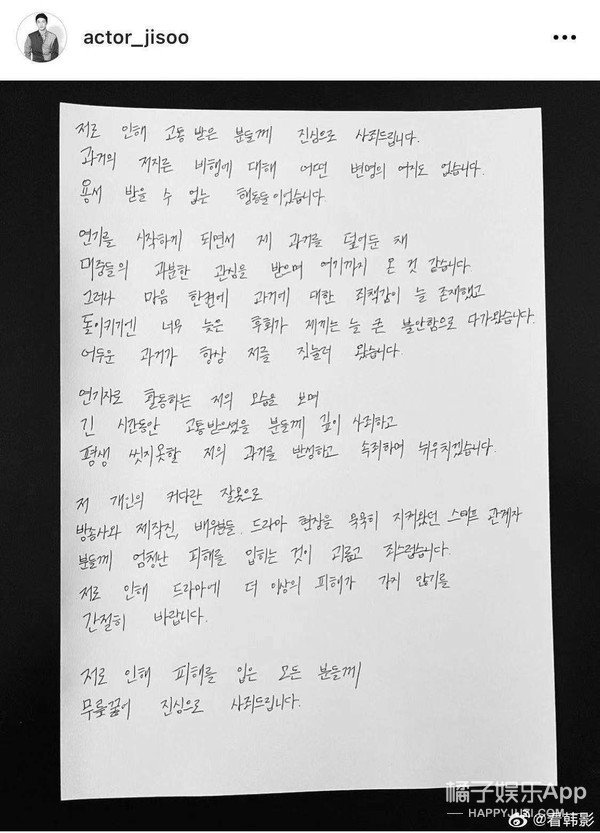 actor_jisoo
저로 인해 고통 받은 분들께 진심으로 사죄드립니다.
과거의 저지른 비행에 대해 어떤 변명의 여지도 없습니다.
용서 받을 수 없는 행동들이었습니다.
연기를 시작하게 되면서 제 과거를 덮어둔 채
대중들의 과분한 관심을 받으며 여기까지 온 것 같습니다
그러나 마음 한켠에 과거에 대한 죄책감이 늘 존재했고
돌이키기엔 너무 늦은 후회가 제게는 늘 큰 불안함으로 다가왔습니다.
어두운 과거가 항상 저를 짓눌러 왔습니다.
연기자로 활동하는 저의 모습을 보며
긴 시간동안 고통받으셨을 분들께 깊이 사죄하고
평생 씻지못할 저의 과거를 반성하고 속죄하며 뉘우치겠습니다.
저 개인의 커다란 잘못으로
방송사와 제작진, 배우분들, 드라마 현장을 묵묵히 지켜왔던 스태프 관계자
분들께 엄청난 피해를 입히는 것이 괴롭고 죄스럽습니다.
저로 인해 드라마에 더 이상의 피해가 가지 않기를
간절히 바랍니다.
저로 인해 피해를 입은 모든 분들께
무릎꿇어 진심으로 사죄드립니다.
橘子娱乐App
HAPPYJUZI.COM
@看韩影